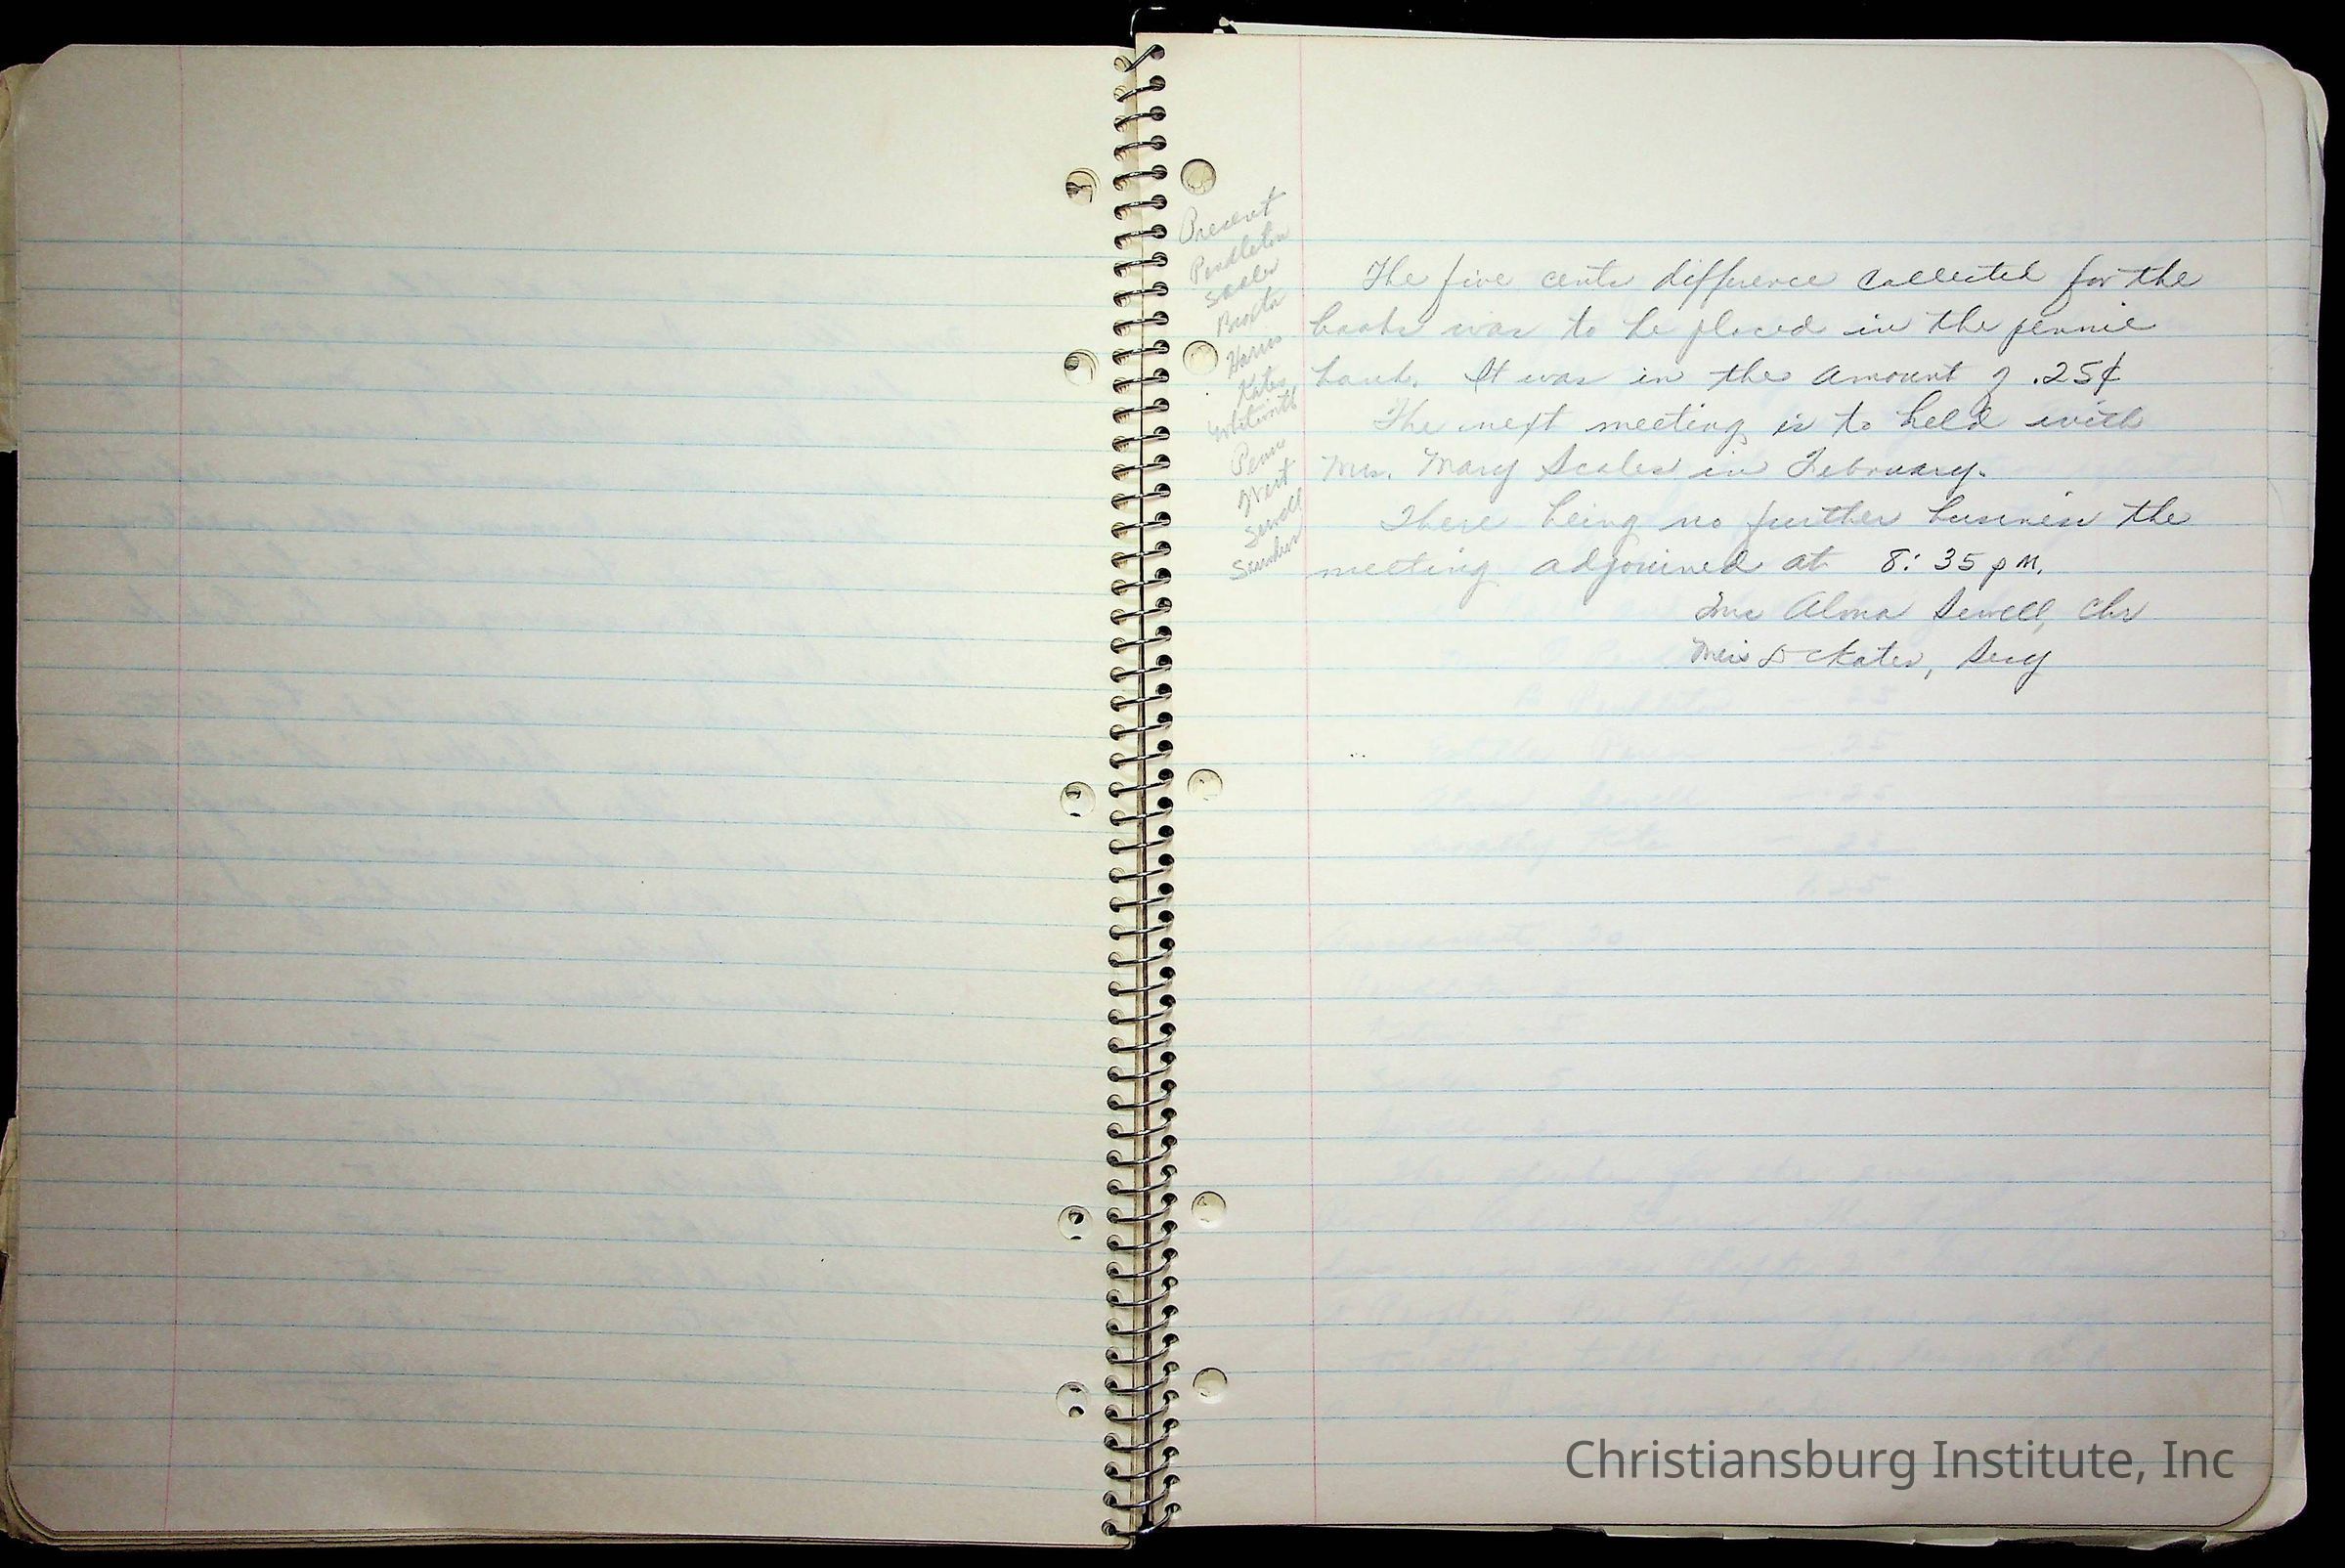 Present
Pendleton
Scales
Broctn
Harris
Kates
Whitworth
Penn
West
Sewell
The five cents diffrence collected for the
books was to be placed in the pennie
bank. It was in the amount of .25¢
The next meeting is to held with
Mrs. Mary Scales in February.
There being no further business the
meeting adjourned at 8:35 pm.
Mrs Alma Sewell, Chr
Kates, Secy
Christiansburg Institute, Inc